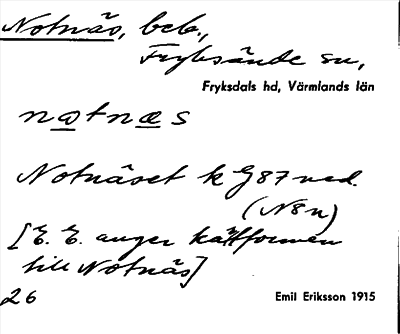 Notnäs, beb.,
Fryksände sn,
Fryksdals hd, Värmlands län
nøtnæs
Notnäset k G87 ned.
(N8n)
[E. E. anger kättformen
till Notnäs]
26
Emil Eriksson 1915